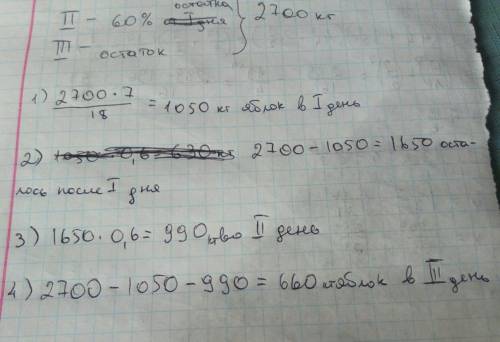 II – 60% остатка } 2700 кг
III – остаток
1) 2700 · 7 / 18 = 1050 кг яблок в I день
2) 2700 – 1050 = 1650 оста-
лось после I дня
3) 1650 · 0,6 = 990 кг во II день
4) 2700 – 1050 – 990 = 660 кг яблок в III день